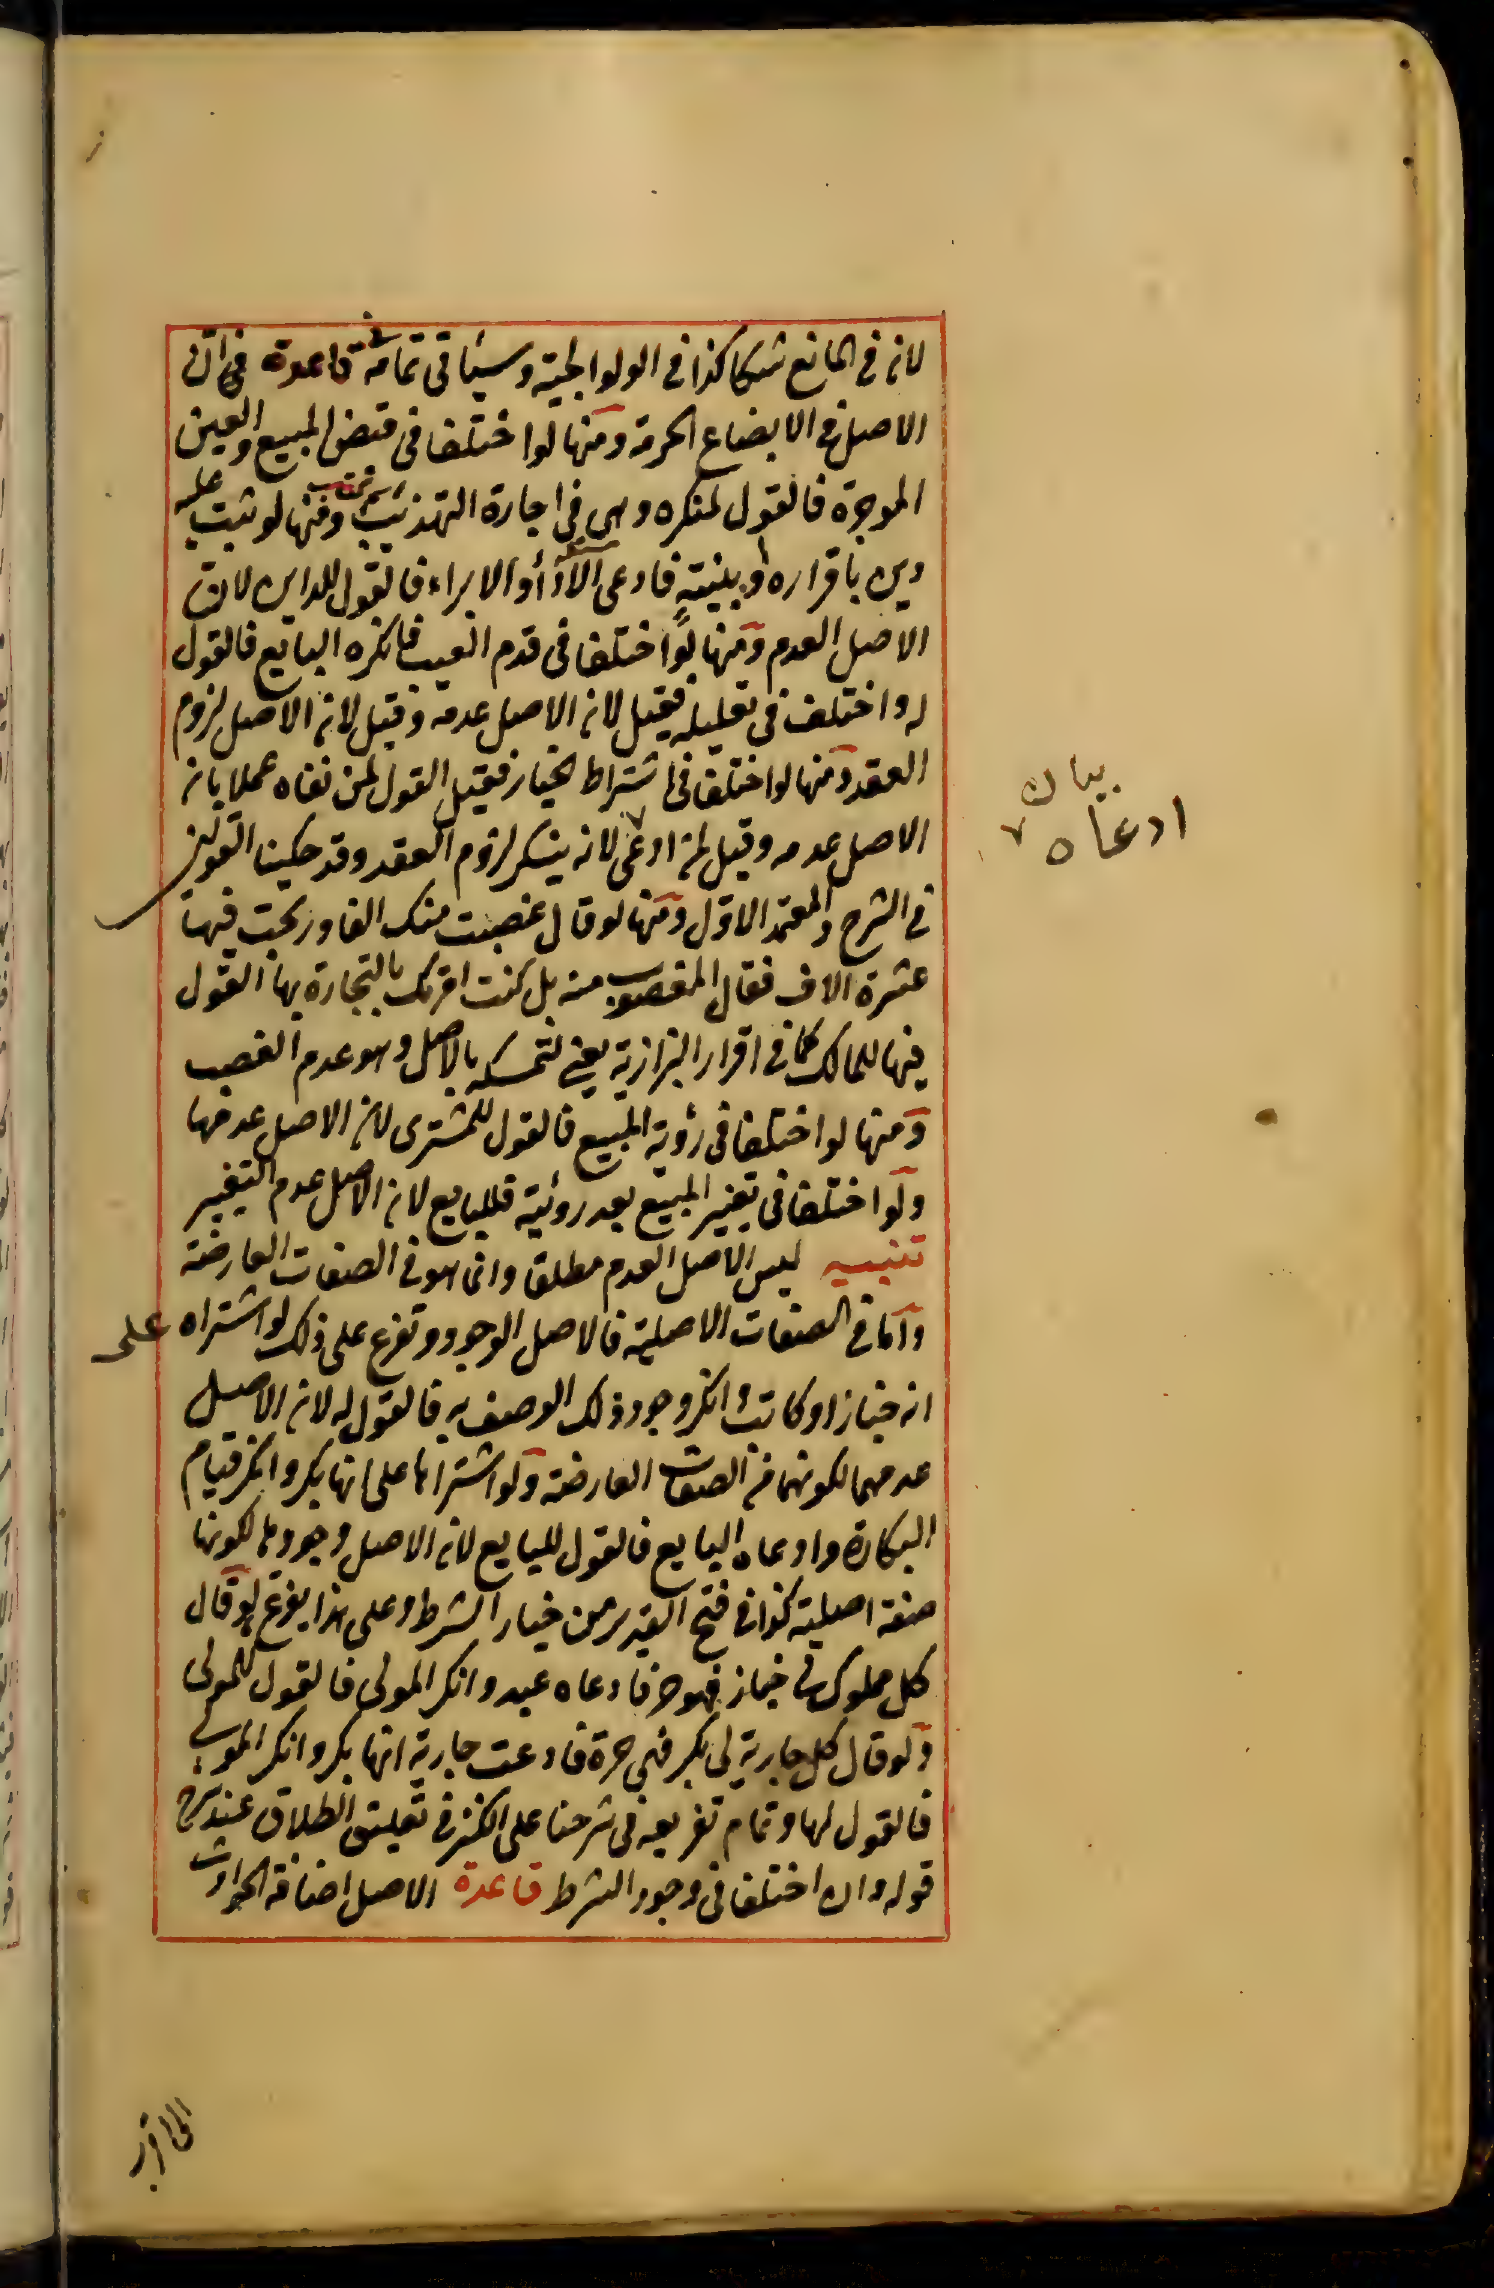 لانه في المانع شكا كذا في الولوالجية وسيئاتي تمامه في قاعدة في ان
الاصل في الابضاع الحرمة ومنها لو اختلفا في قبض المبيع والعين
الموجرة فالقول لمنكره وهي في اجارة التهذيب ومنها لو ثبت عليه
دين باقراره او بينة فادعى الاداء او الابراء فالقول للداين لان
الاصل العدم ومنها لو اختلفا في قدم العيب فانكره البايع فالقول
له واختلف في تعليله فقيل لانه الاصل عدمه وقيل لانه الاصل لزوم
العقد ومنها لو اختلفا في اشتراط الخيار فقيل القول لمن نفاه عملا بانه
الاصل عدمه وقيل لمن ادعى لانه ينكر لزوم العقد وقد حكينا القولين
في الشرح والمعتمد الاول ومنها لو قال غصبت منك الفا وربحت فيها
عشرة الاف فقال المغصوب منه بل كنت امرتك بالتجارة بها القول
فيها للمالك كما في اقرار البزازية يعني لتمسكه بالاصل وهو عدم الغصب
ومنها لو اختلفا في رؤية المبيع فالقول للمشترى لانه الاصل عدمها
ولو اختلفا في تغيير المبيع بعد رويئة فللبايع لانه الاصل عدم التغيير
تنبيه ليس الاصل العدم مطلقا وانما هو في الصفات العارضة
واما في الصفات الاصلية فالاصل الوجود وتفرع على ذلك لو اشتراه على
انه خباز او كاتب وانكر وجود ذلك الوصف به فالقول له لانه الاصل
عدمهما لكونهما من الصفات العارضة ولو اشتراها على انها بكر وانكر قيام
البكارة وادعاه البايع فالقول للبايع لانه الاصل وجودها لكونها
صفة اصلية كذا في فتح القدير من خيار الشرط وعلى هذا يفرع لو قال
كل مملوك لي خباز فهو حر فادعاه عبد وانكر المولى فالقول للمولى
ولو قال كل جارية لى بكر فهي حرة فادعت جارية انها بكر وانكر المولى
فالقول لها وتمام تفريعه في شرحنا على الكنز في تعليق الطلاق عند شرح
قوله وان اختلفا في وجود الشرط قاعدة الاصل اضافة الحوادث
بيان
ادعاه
الى اقرب